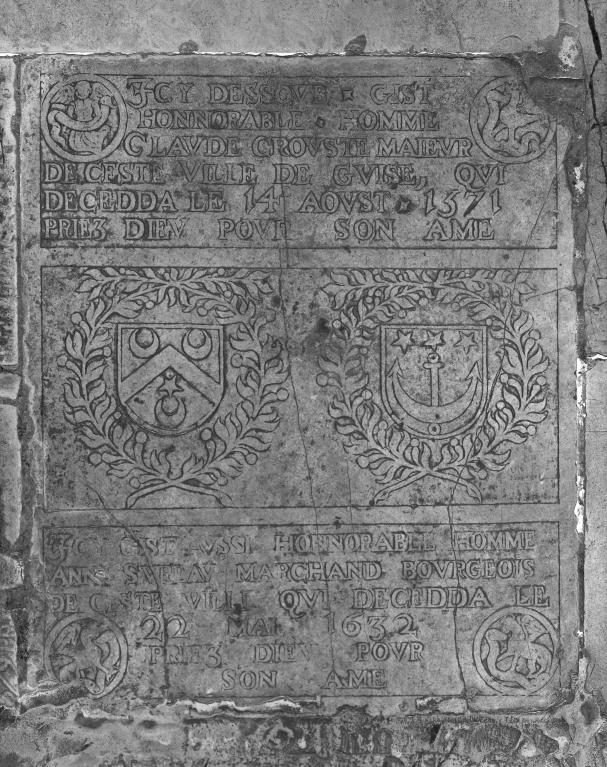 ICY DESSOVB · GIST
HONNORABLE · HOMME
CLAVDE CROVSTE MAIEVR
DE CESTE VILLE DE GVISE, QVI
DECEDDA LE 14 AOVST 1571
PRIEZ DIEV POVR SON AME
ICY GIST AVSSI HONNORABLE HOMME
MARCHAND BOVRGEOIS
DE CESTE VILLE QVI DECEDDA LE
22 MAI 1632
PRIEZ DIEV POVR
SON AME